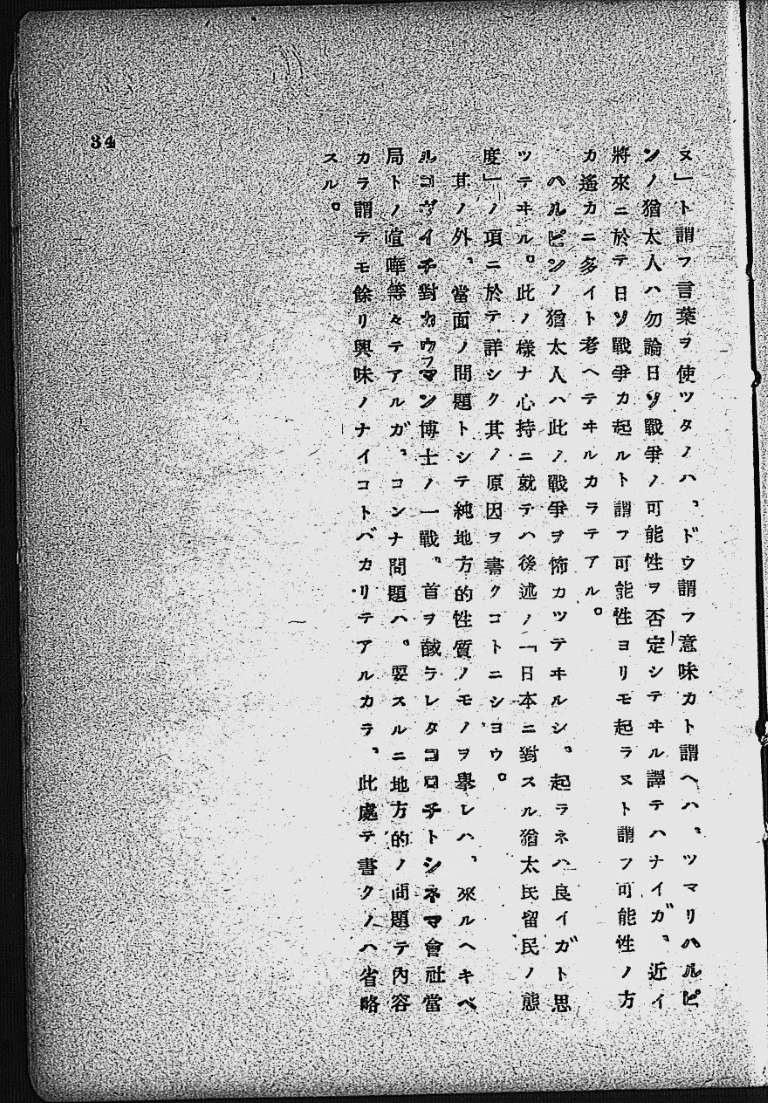 ヌ」ト謂フ言葉ヲ使ツタノハ、ドウ謂フ意味カト謂ヘハ、ツマリハルピ
ンノ猶太人ハ勿論日ソ戰爭ノ可能性ヲ否定シテヰル譯テハナイガ、近イ
將來ニ於テ日ソ戰爭カ起ルト謂フ可能性ヨリモ起ラヌト謂フ可能性ノ方
カ遙カニ多イト考ヘテヰルカラテアル。
ハルピンノ猶太人ハ此ノ戰爭ヲ怖カツテヰルシ、起ラネハ良イガト思
ツテヰル。此ノ樣ナ心持ニ就テハ後述ノ「日本ニ對スル猶太民留民ノ態
度」ノ項ニ於テ詳シク其ノ原因ヲ書クコトニシヨウ。
其ノ外、當面ノ問題トシテ純地方的性質ノモノヲ擧レハ、來ルヘキベ
ルコヴイチ對カウフマン博士ノ一戰、首ヲ馘ラレタコロチトシネマ會社當
局トノ喧嘩等々テアルガ、コンナ問題ハ。要スルニ地方的ノ問題テ內容
カラ謂テモ餘リ興味ノナイコトバカリテアルカラ、此處テ書クノハ省略
スル。
34